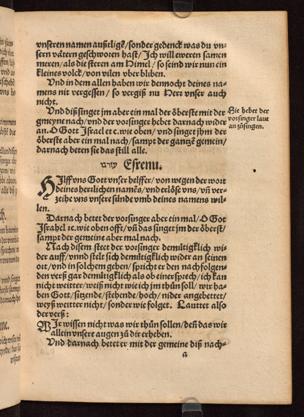 vnseren namen außeligẽ/sonder gedenck was du vn-
sern vätern geschworen hast/Ich will eweren samen
meren/als die steren am Himel/so seind wir nun ein
kleines volck/von vilen vberbliben.
Vnd in dem allen haben wir dennocht deines na-
mens nit vergessen/so vergiß nu Herr vnser auch
nicht.
Vnd diß singet jm aber ein mal der öberste mit der
gmeyne nach/vnd der vorsinger hebet darnach wider
an. O Gott Israel etc. wie oben/vnd singet jhm der
öberste aber ein mal nach/sampt der gantzẽ gemein/
darnach beten sie das still alle.
Hie hebet der
vorsinger laut
an zůsingen.
עזרנו Esrenu.
HIlff vns Gott vnser helffer/von wegen der wort
deines herrlichen namẽs/vnd erlöse vns/vñ ver-
zeihe vns vnsere sünde vmb deines namens wil-
len.
Darnach betet der vorsinger aber ein mal/O Got
Israhel etc. wie oben offt/vñ das singet jm der öberst/
sampt der gemeine aber mal nach.
Nach disem steet der vorsinger demütigklich wi-
der auff/vnnd stelt sich demütigklich wider an seinen
ort/vnd in solchem gehen/spricht er den nachfolgen-
den verß gar demütigklich als ob einer sprech/ich kan
nicht weitter/weiß nicht wie ich jm thůn soll/wir ha-
ben Gott/ligende/stehende/hoch/nider angebettet/
weyß weitter nicht/sonder wie folget. Lauttet also
der verß:
WIe wissen nicht was wir thůn sollen/deñ das wir
allein vnsere augen zů dir erheben.
Vnd darnach betet er mit der gemeine diß nach-